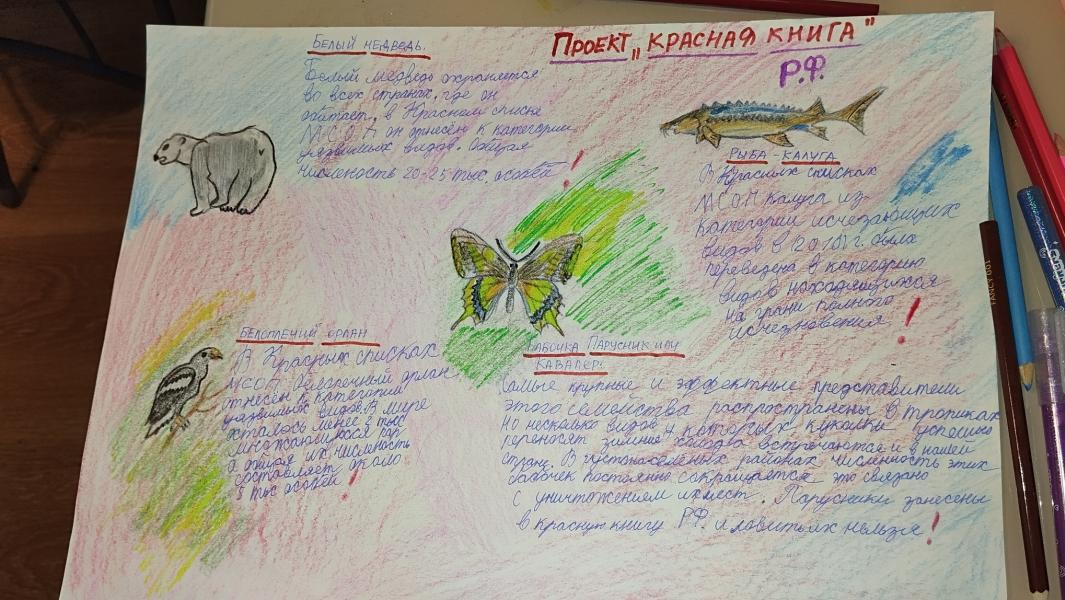 Проект „Красная книга"
Р.Ф.
Белый медведь.
Белый медведь охраняется
во всех странах, где он
обитает. в Красном списке
МСОП он отнесён к категории
уязвимых видов. Общая
численность 20-25 тыс. особей!
Рыба - калуга
В Красных списках
МСОП калуга из
категории исчезающих
видов в г. была
переведена в категорию
видов находящихся
на грани полного
исчезновения!
Белоплечий орлан
В Красных списках
МСОП белоплечий орлан
отнесен к категории
уязвимых видов. В мире
осталось менее тыс
пар
а общая их численость
составляет около
5 тыс особей!
Бабочка Парусник или
Кавалер:
Самые крупные и эффектные представители
этого семейства распространены в тропиках
но несколько видов у которых куколки успешно
переносят зимние холода встречаются и в нашей
стране. В густонаселёных районах численность этих
бабочек постоянно сокращается это связано
с уничтожением их мест. Парусники занесены
в Красную книгу Р.Ф. и ловить их нельзя!
FANCY 001